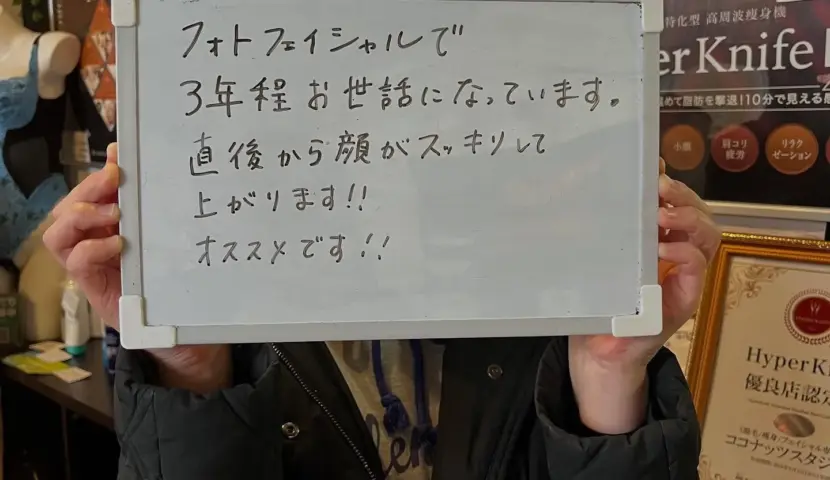 フォトフェイシャルで
3年程お世話になっています。
直後から顔がスッキリして
上がります!!
オススメです!!
特化型 高周波痩身機
erKnife
めて脂肪を撃退!10分で見える
小顔
肩コリ
疲労
リラク
ゼーション
HyperK
優良店認
ココナッツスタジ